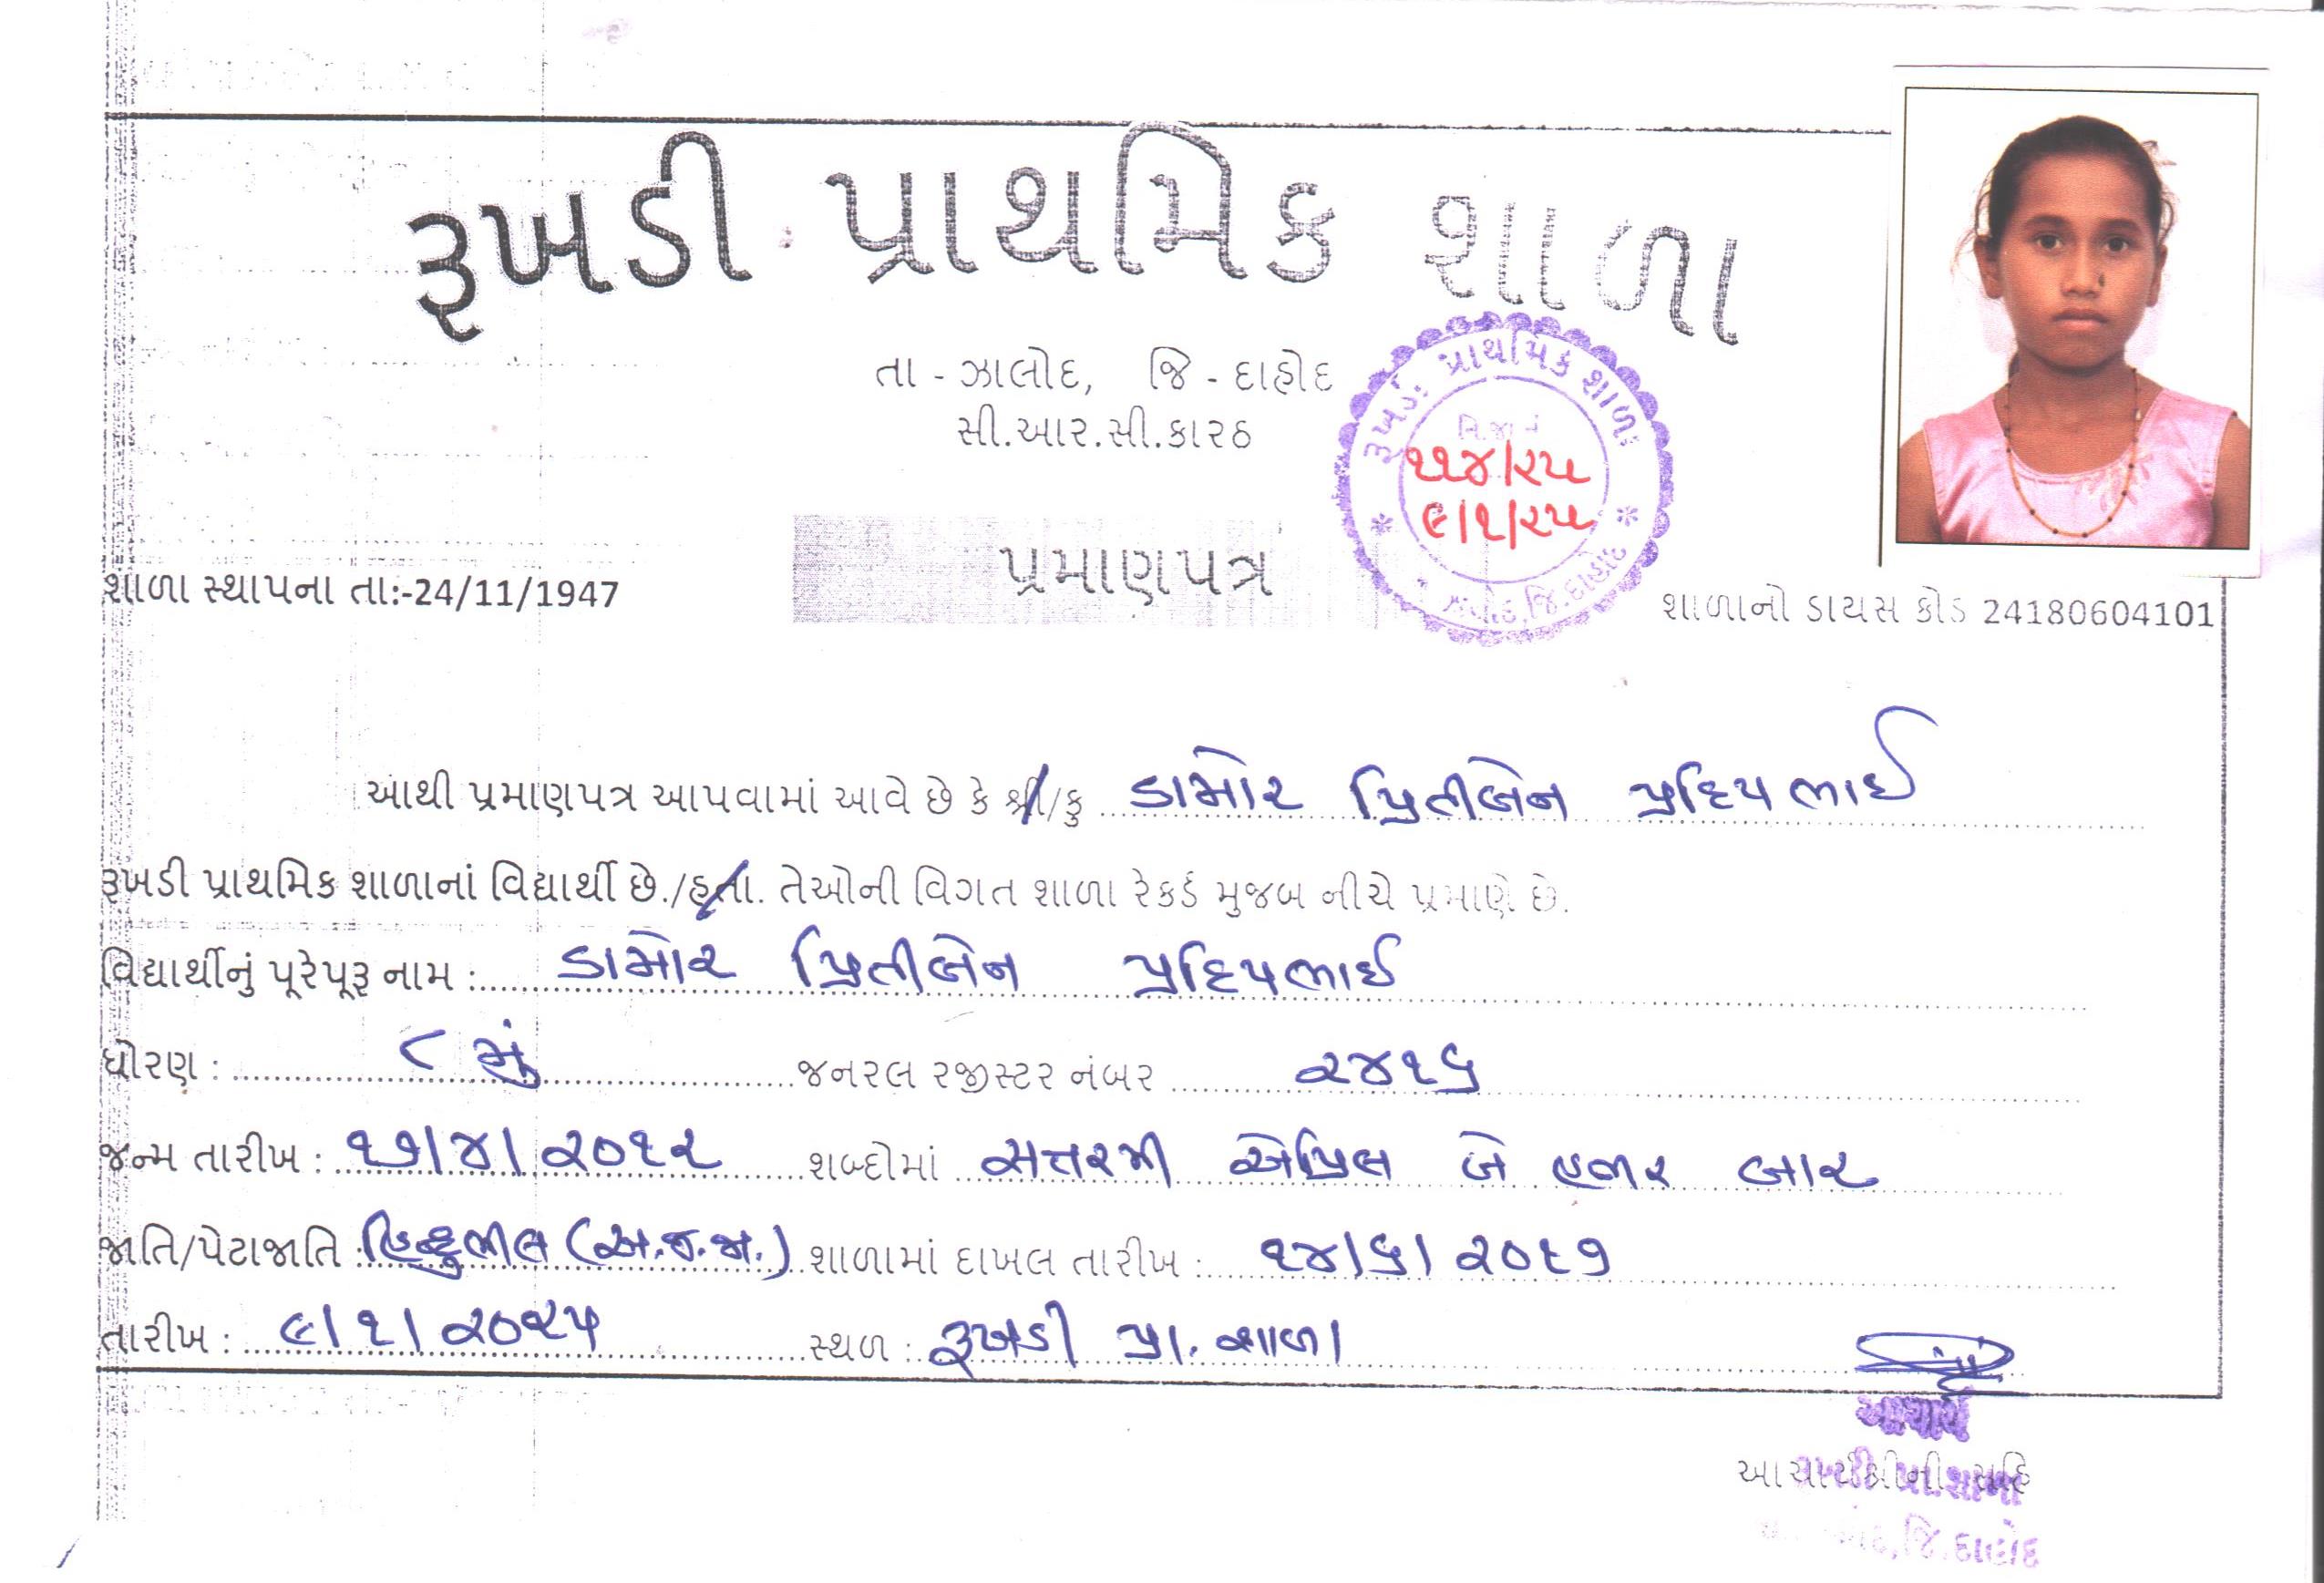 રૂખડી પ્રાથમિક શાળા
તા - ઝાલોદ, જિ - દાહોદ
સી.આર.સી.કારઠ
રૂખડી પ્રાથમિક શાળા
નિ.જા નં
૧૧૪/૨૫
૯/૧/૨૫
જિ.દાહોદ
પ્રમાણપત્ર
શાળા સ્થાપના તા:-24/11/1947
શાળાનો ડાયસ કોડ 24180604101
આથી પ્રમાણપત્ર આપવામાં આવે છે કે શ્રી/કુ ડામોર પ્રિતીબેન પ્રદિપભાઈ
રૂખડી પ્રાથમિક શાળાનાં વિદ્યાર્થી છે./હતા. તેઓની વિગત શાળા રેકર્ડ મુજબ નીચે પ્રમાણે છે.
વિદ્યાર્થીનું પૂરેપૂરૂ નામ : ડામોર પ્રિતીબેન પ્રદિપભાઈ
ધોરણ : ૮ મું જનરલ રજીસ્ટર નંબર ૨૪૧૬
જન્મ તારીખ : ૧૭/૪/૨૦૧૨ શબ્દોમાં સત્તરમી એપ્રિલ બે હજાર બાર
જાતિ/પેટાજાતિ : હિન્દુભીલ (અ.જ.જા.) શાળામાં દાખલ તારીખ : ૧૪/૬/૨૦૧૭
તારીખ : ૯/૧/૨૦૨૫ સ્થળ : રૂખડી પ્રા. શાળા
આચાર્ય
આચાર્યશ્રીની સહિ
રૂખડી પ્રા.શાળા
જિ.દાહોદ